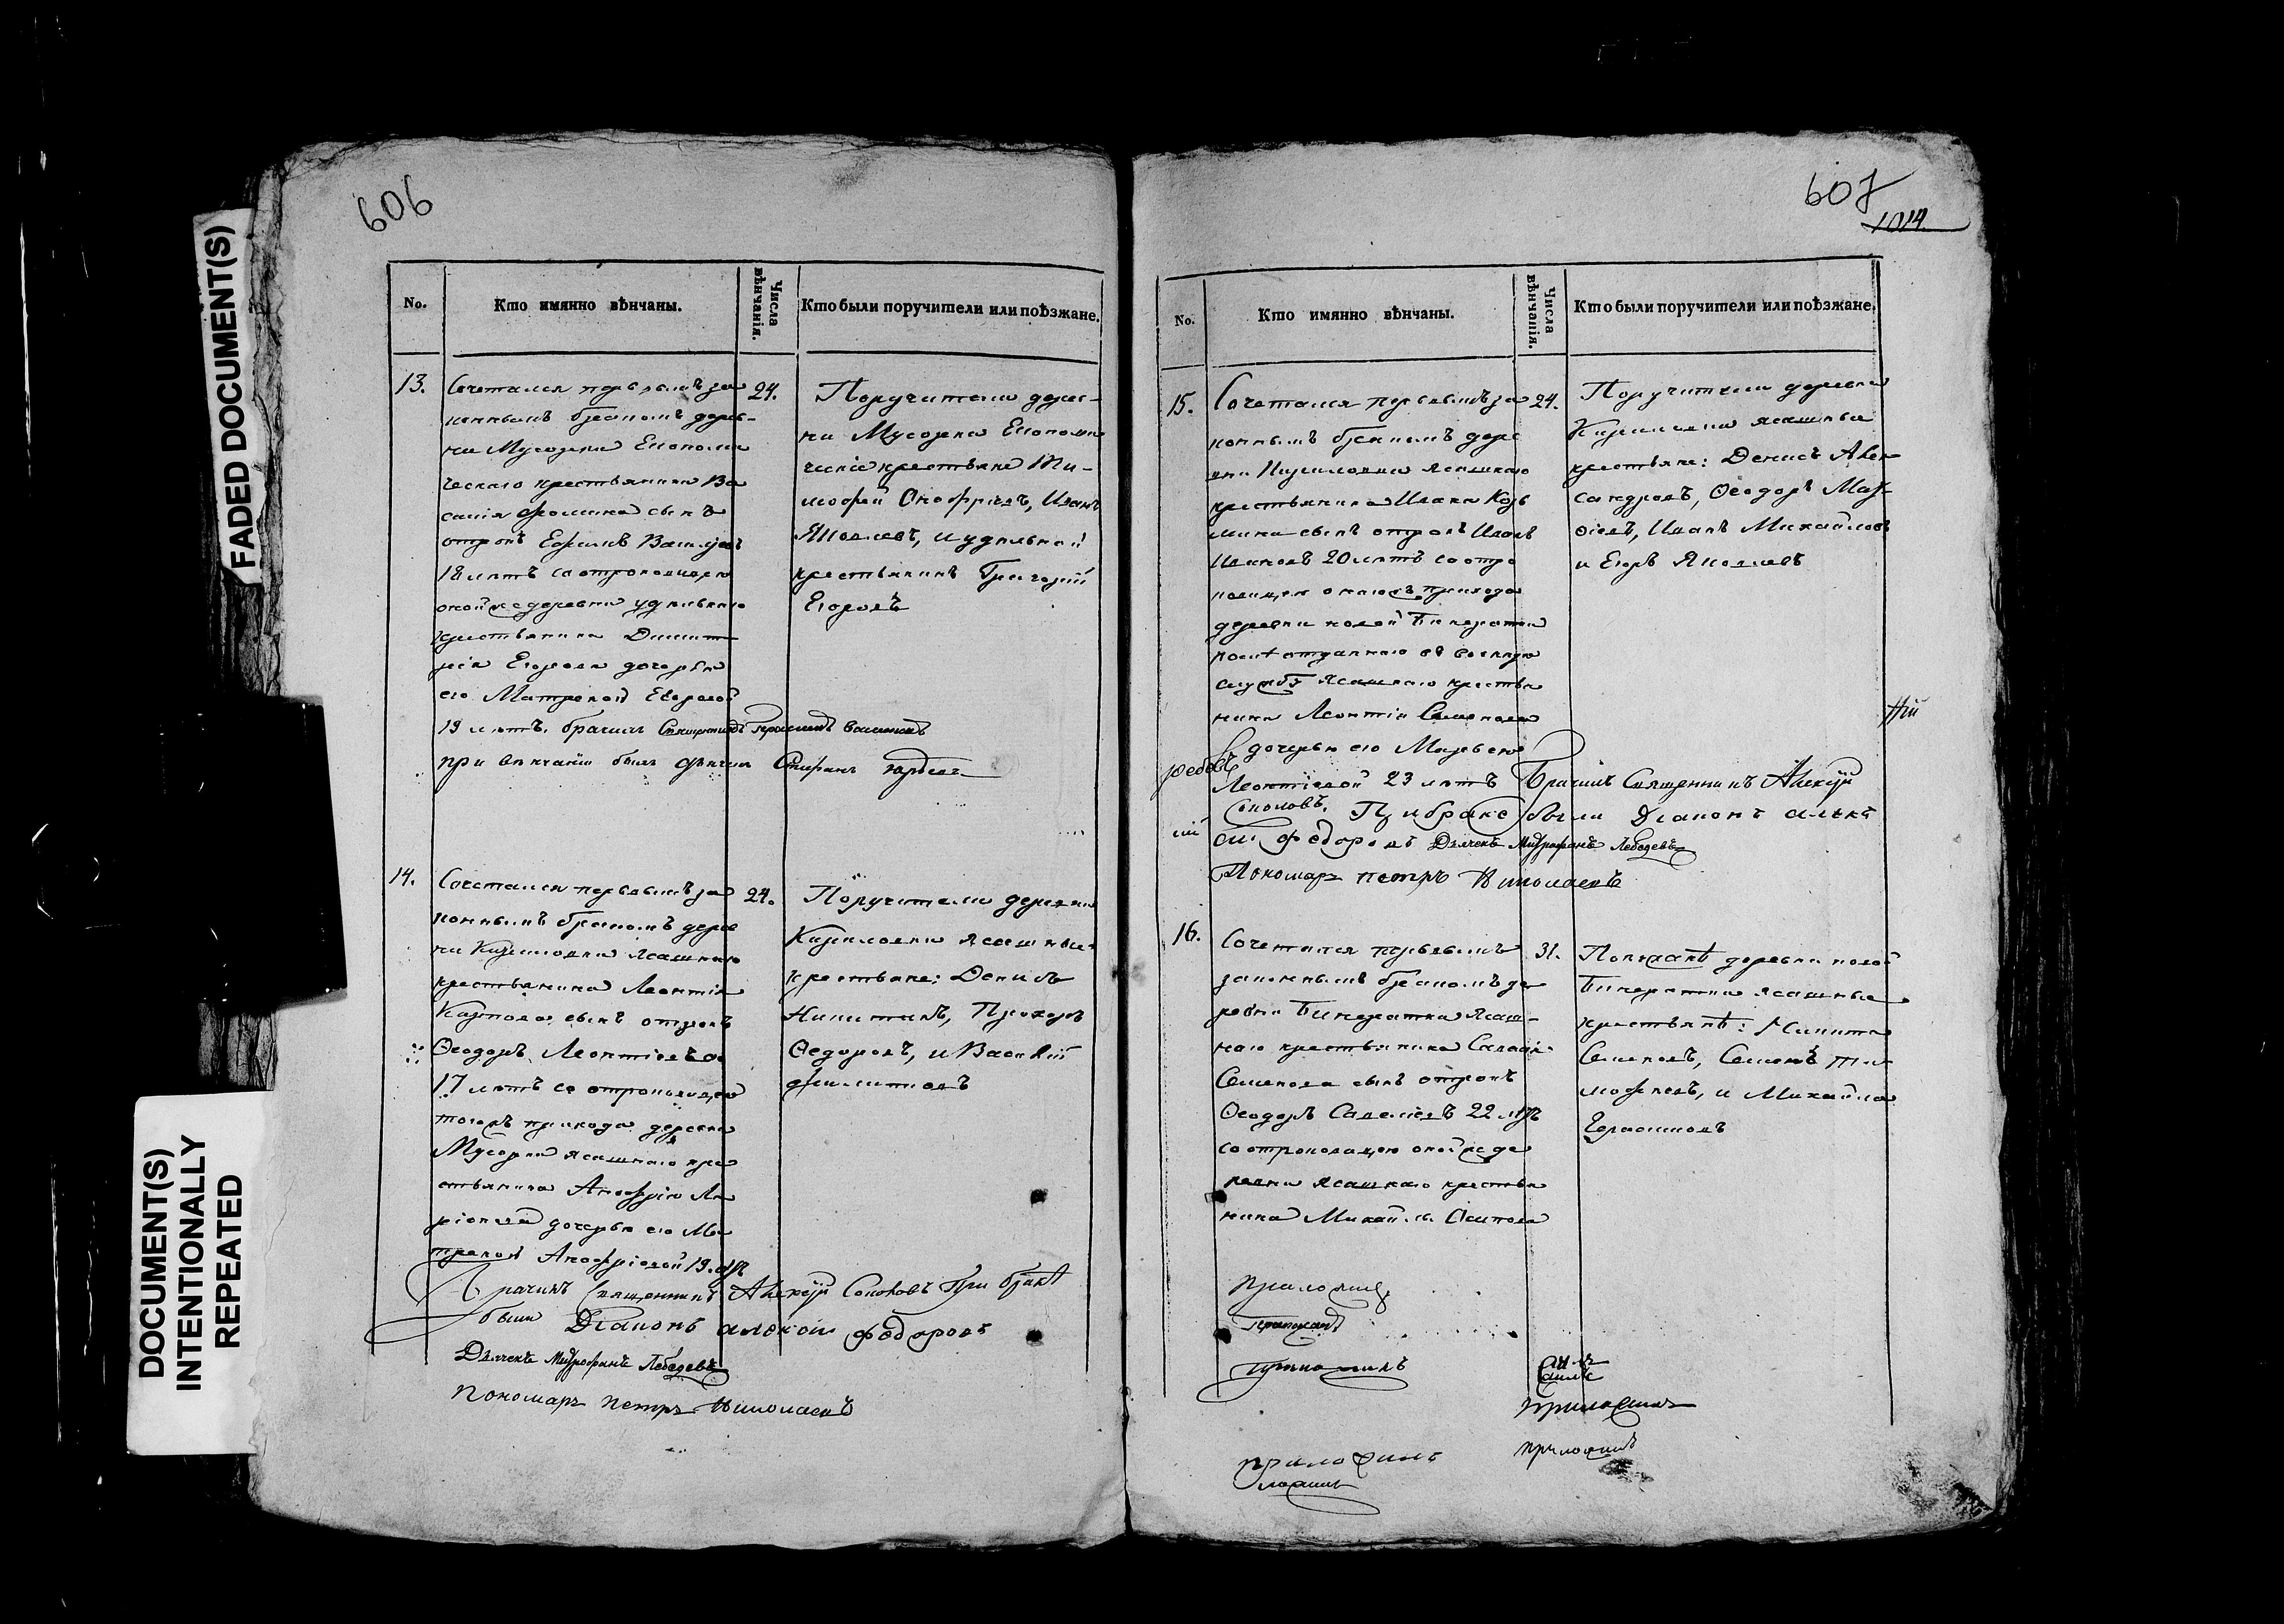 FADED DOCUMENT(S)
DOCUMENT(S)
INTENTIONALLY
REPEATED
606
No.
Кто имянно вѣнчаны.
Числа
вѣнчанія.
Кто были поручители или поѣзжане.
13.
Сочетался первымъ за
коннымъ бракомъ дерев-
ни Мусорки Економи
ческаго крестьянина Ва
силія Фомина сынъ
отрокъ Ефимъ Васильевъ
18 лѣтъ со отроковицею
оной же деревни удѣльнаго
крестьянина Димит
рія Егорова дочерью
его Матроной Егоровой
19 лѣтъ. брачилъ Священникъ
при вѣнчаніи былъ дьячекъ Стефанъ
24.
Поручители дерев-
ни Мусорки Економи
ческіе крестьяне Ти-
мофей Онофріевъ, Иванъ
Яковлевъ, и удѣльной
крестьянинъ Григорій
Егоровъ
14.
Сочетался первымъ за
коннымъ бракомъ дерев
ни Кириловки Ясашнаго
крестьянина Леонтія
Карпова сынъ отрокъ
Ѳеодоръ Леонтіевъ
17 лѣтъ со отроковицею
тогожъ прихода деревни
Мусорки ясашнаго кре
стьянина Анофрія Ла
ріонова дочерью его Ма
троной Анофріевой 19. лѣтъ
Брачилъ Священникъ Алексѣй Соколовъ При бракѣ
были Діаконъ алексей федоровъ
Дьячекъ Митрофанъ Лебедевъ
Пономарь петръ Николаевъ
24.
Поручители деревни
Кириловки Ясашные
крестьяне: Денисъ
Никитинъ, Прохоръ
Ѳедоровъ, и Василій
Филиповъ
607
1014.
No.
Кто имянно вѣнчаны.
Числа
вѣнчанія.
Кто были поручители или поѣзжане.
15.
Сочетался первымъ за
коннымъ бракомъ дере
вни Кириловки ясашнаго
крестьянина Ивана Козь
мина сынъ отрокъ Иванъ
Ивановъ 20 лѣтъ со отро
ковицею онагожъ прихода
деревни новой Бинаратки
отданнаго въ военную
службу Ясашнаго крестья
нина Леонтія Семенова
дочерью его Марьею
Леонтіевой 23 лѣтъ Брачилъ Священникъ Алексѣй
Соколовъ. При браке были Діаконъ алекс
ей федоровъ Дьячекъ Митрофанъ Лебедевъ
Пономарь петръ Николаевъ
24.
Поручители деревни
Кириловки ясашные
крестьяне: Денисъ Алек
сандровъ, Ѳеодоръ Мат
ѳіевъ, Иванъ Михайловъ
и Егоръ Яковлевъ
16.
Сочетался первымъ
законнымъ бракомъ де
ревни Бинаратки Ясаш-
наго крестьянина Савелія
Семенова сынъ отрокъ
Ѳеодоръ Савеліевъ 22 лѣтъ
со отроковицею оной же де
ревни ясашнаго крестья
нина Михайлы Осипова
31.
Поѣзжанѣ деревни новой
Бинаратки ясашные
крестьянѣ: Никита
Семеновъ, Семенъ Ти
мофеевъ, и Михайла
Герасимовъ
приложилъ
приложилъ
приложилъ